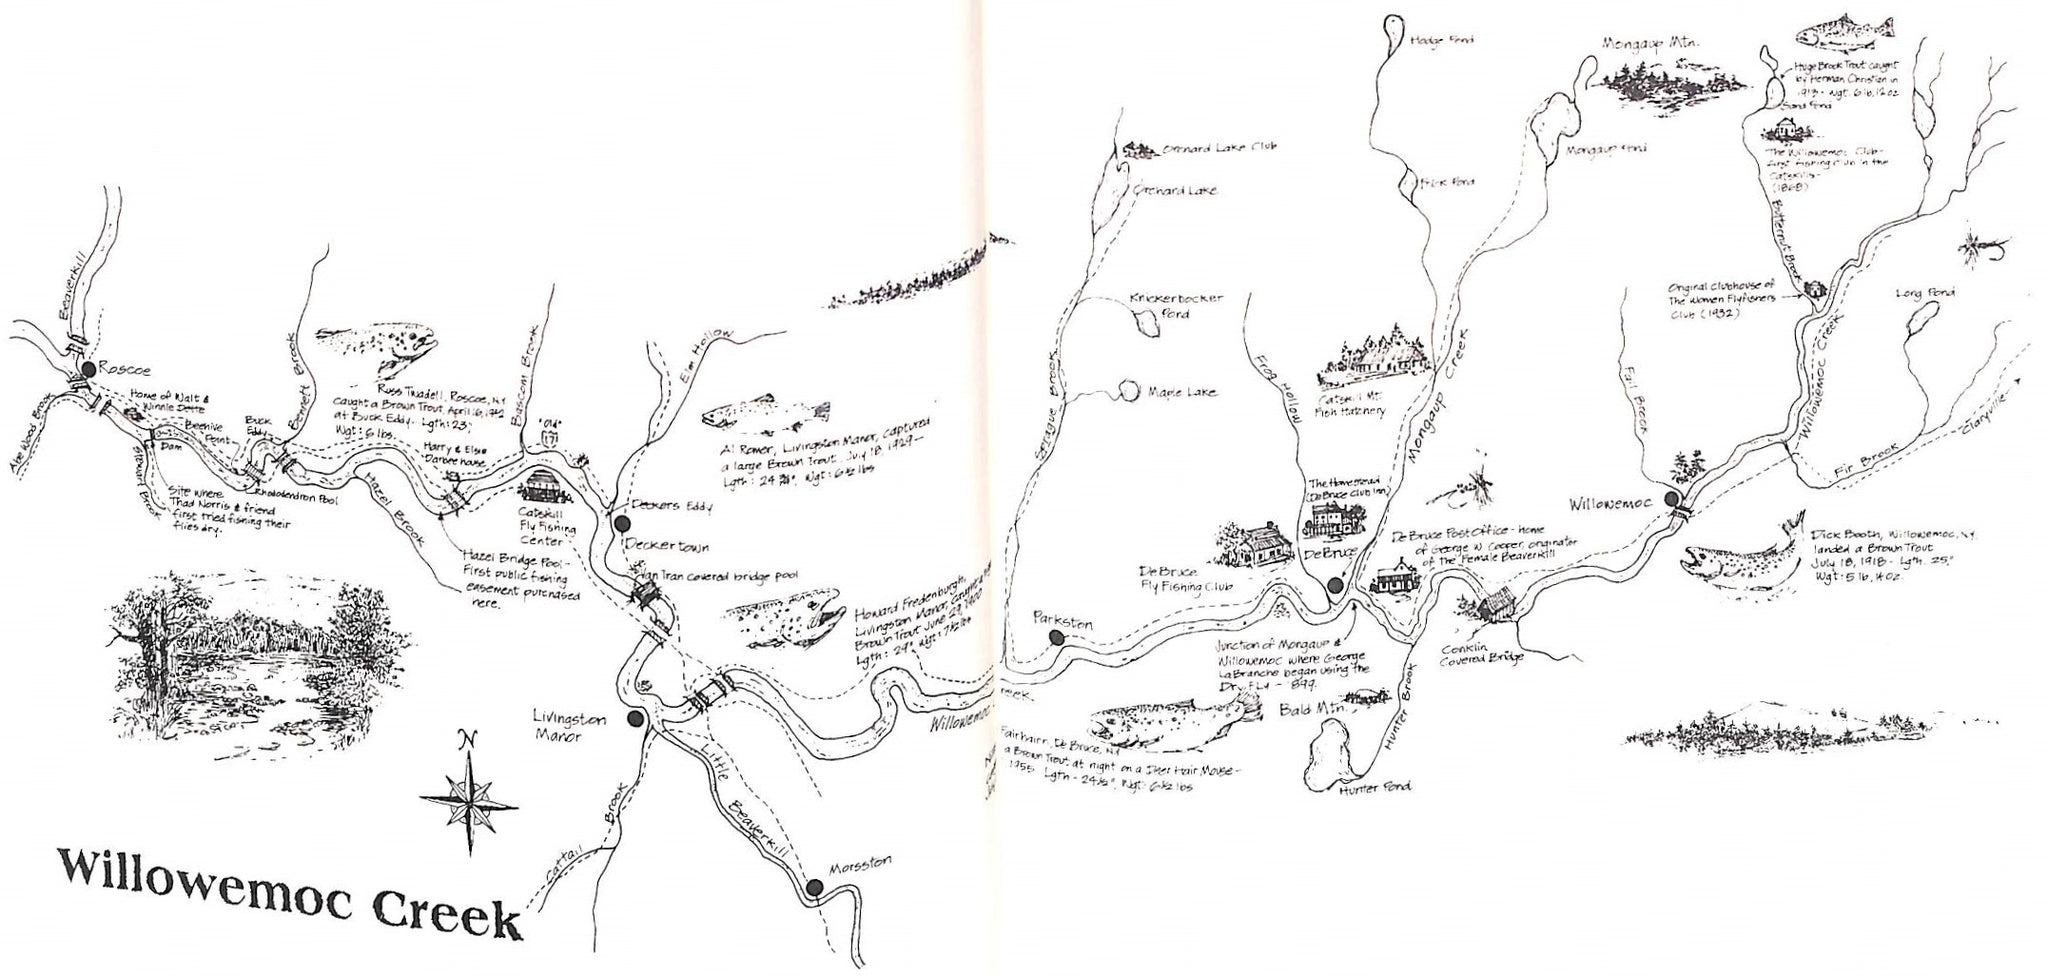 Beaverkill
Roscoe
Abe Wood Brook
Home of Walt &
Winnie Dette
Beehive
Point
Dam
Brook
Site where
Thad Norris & friend
first tried fishing their
flies dry.
Buck
Eddy
Rhododendron Pool
Bennett Brook
Russ Twadell, Roscoe, N.Y.
caught a Brown Trout, April 16,
at Buck Eddy. Lgth: 23,"
Wgt: 6 lbs.
Harry & Elsie
Darbee house
Hazel Brook
Hazel Bridge Pool-
First public fishing
easement purchased
here.
Bascom Brook
"Old"
17
Catskill
Fly Fishing
Center
Elm Hollow
Al Romer, Livingston Manor, captured
a large Brown Trout, July 18, 1929-
Lgth: 24 Wgt: 6½ lbs
Deckers Eddy
Deckertown
Tran covered bridge pool
Howard Fredenburgh,
Livingston Manor, caught
Brown Trout June 29,
Lgth: 29" Wgt: 7½ lbs
Livingston
Manor
Little
Beaverkill
Cattail
Brook
Morsston
Willowemoc
reek
N
Willowemoc Creek
Orchard Lake Club
Orchard Lake
Knickerbocker
Pond
Maple Lake
Sprague Brook
Parkston
Hodge Pond
Frick Pond
Mongaup Mtn.
Mongaup Pond
Mongaup Creek
Frog Hollow
Catskill Mt.
Fish Hatchery
The Homestead
(DeBruce Club Inn)
De Bruce
De Bruce
Fly Fishing Club
De Bruce Post Office - home
of George W. Cooper, originator
of the "Female Beaverkill"
Junction of Mongaup &
Willowemoc where George
LaBranche began using the
Dry Fly - 1899.
Bald Mtn.
Hunter Brook
Hunter Pond
Fairbairn, De Bruce, N.Y.
a Brown Trout at night on a Deer Hair Mouse-
1955 Lgth - 24½", Wgt: 6½ lbs
Conklin
Covered Bridge
Fall Brook
Willowemoc
Dick Booth, Willowemoc, N.Y.
landed a Brown Trout
July 18, 1918 - Lgth. 25,"
Wgt: 5 lb, 14 oz.
Huge Brook Trout caught
by Herman Christian in
1913 - Wgt. 6 lb, 12 oz
Sand Pond
The Willowemoc Club-
first fishing club in the
Catskills-
(1868)
Butternut Brook
Original Clubhouse of
The Women Flyfishers
Club (1932)
Long Pond
Willowemoc Creek
Fir Brook
Claryville